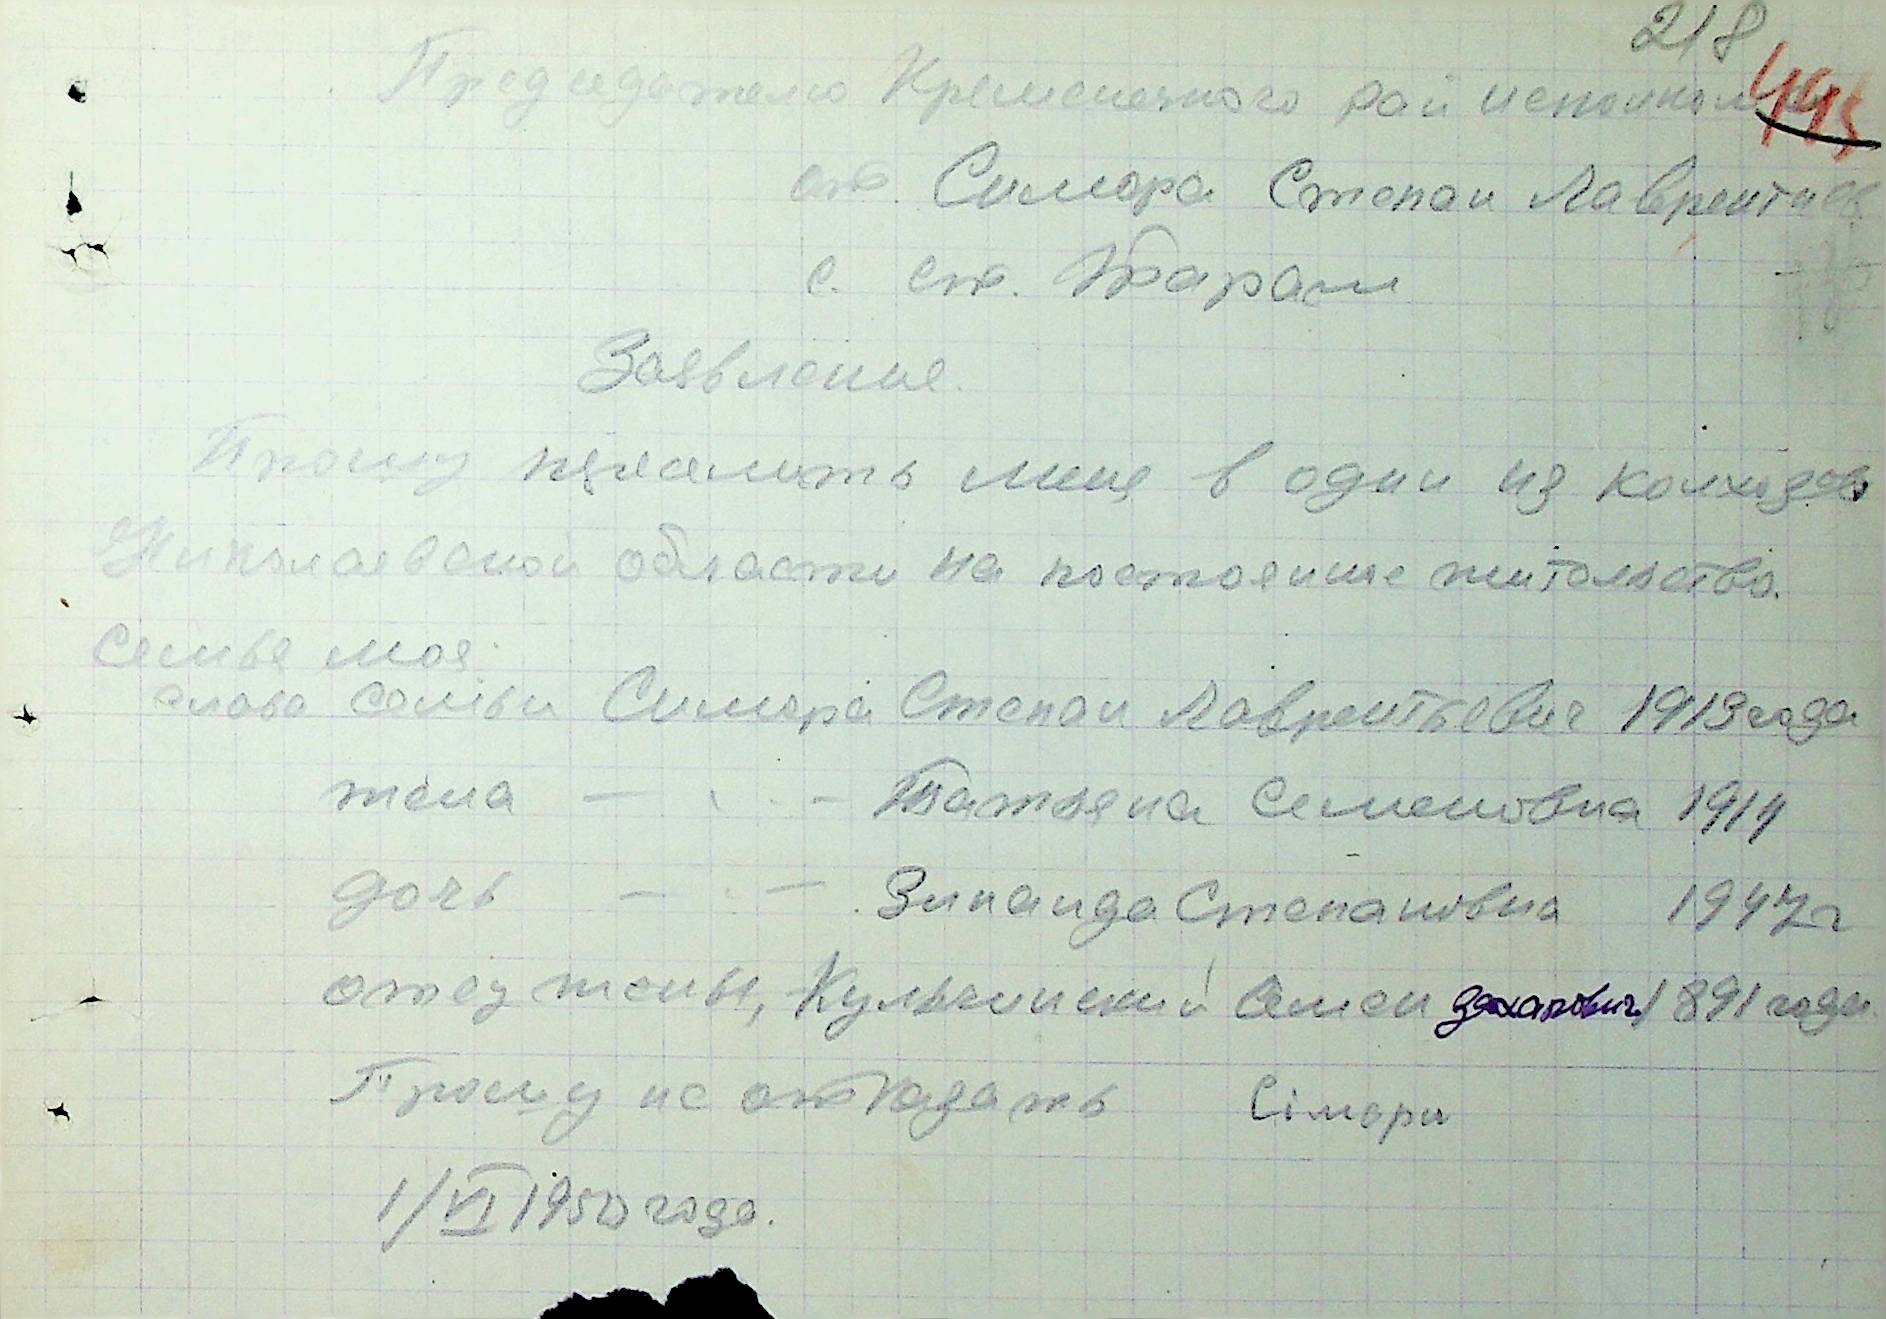 218
445
Председателю Кременецкого рай исполкома
от Симора Степан Лаврентиев
с. ст. Тараж
Заявление.
Прошу принять мене в один из колхозов
Николаевской области на постояние жительство.
Семья моя
глава семьи Симора Степан Лаврентьевич 1913 года
жена — . . — Татьяна Семеновна 1914
дочь — . — Зинаида Степановна 1947 г
отец жены, Кульчинский Семен Захарович 1891 года.
Прошу не отказать Сімора
1/VI 1950 года.